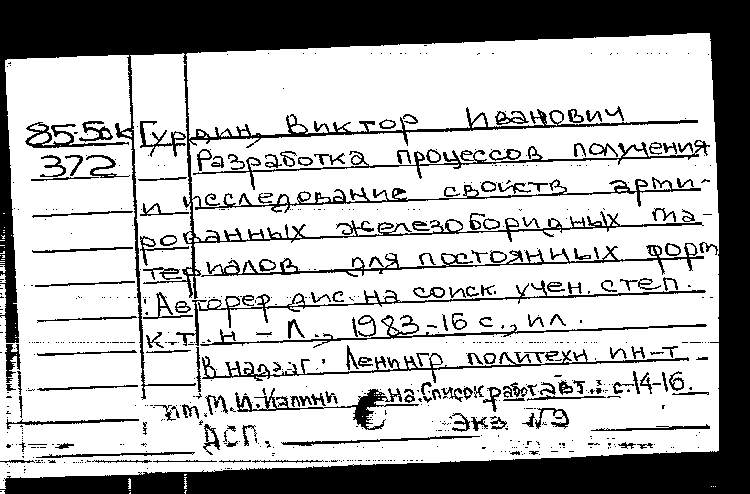 85-50к Гурдин, Виктор Иванович
372 Разработка процессов получения
и исследование свойств арми-
рованных железоборидных ма-
териалов для постоянных форм
: Автореф дис. на соиск. учен. степ.
к.т.н - Л., 1983.-16 с., ил.
В надзаг: Ленингр политехн. ин-т
им. М.И. Калинина. Список работ авт.: с.14-16.
ДСП. Экз №9